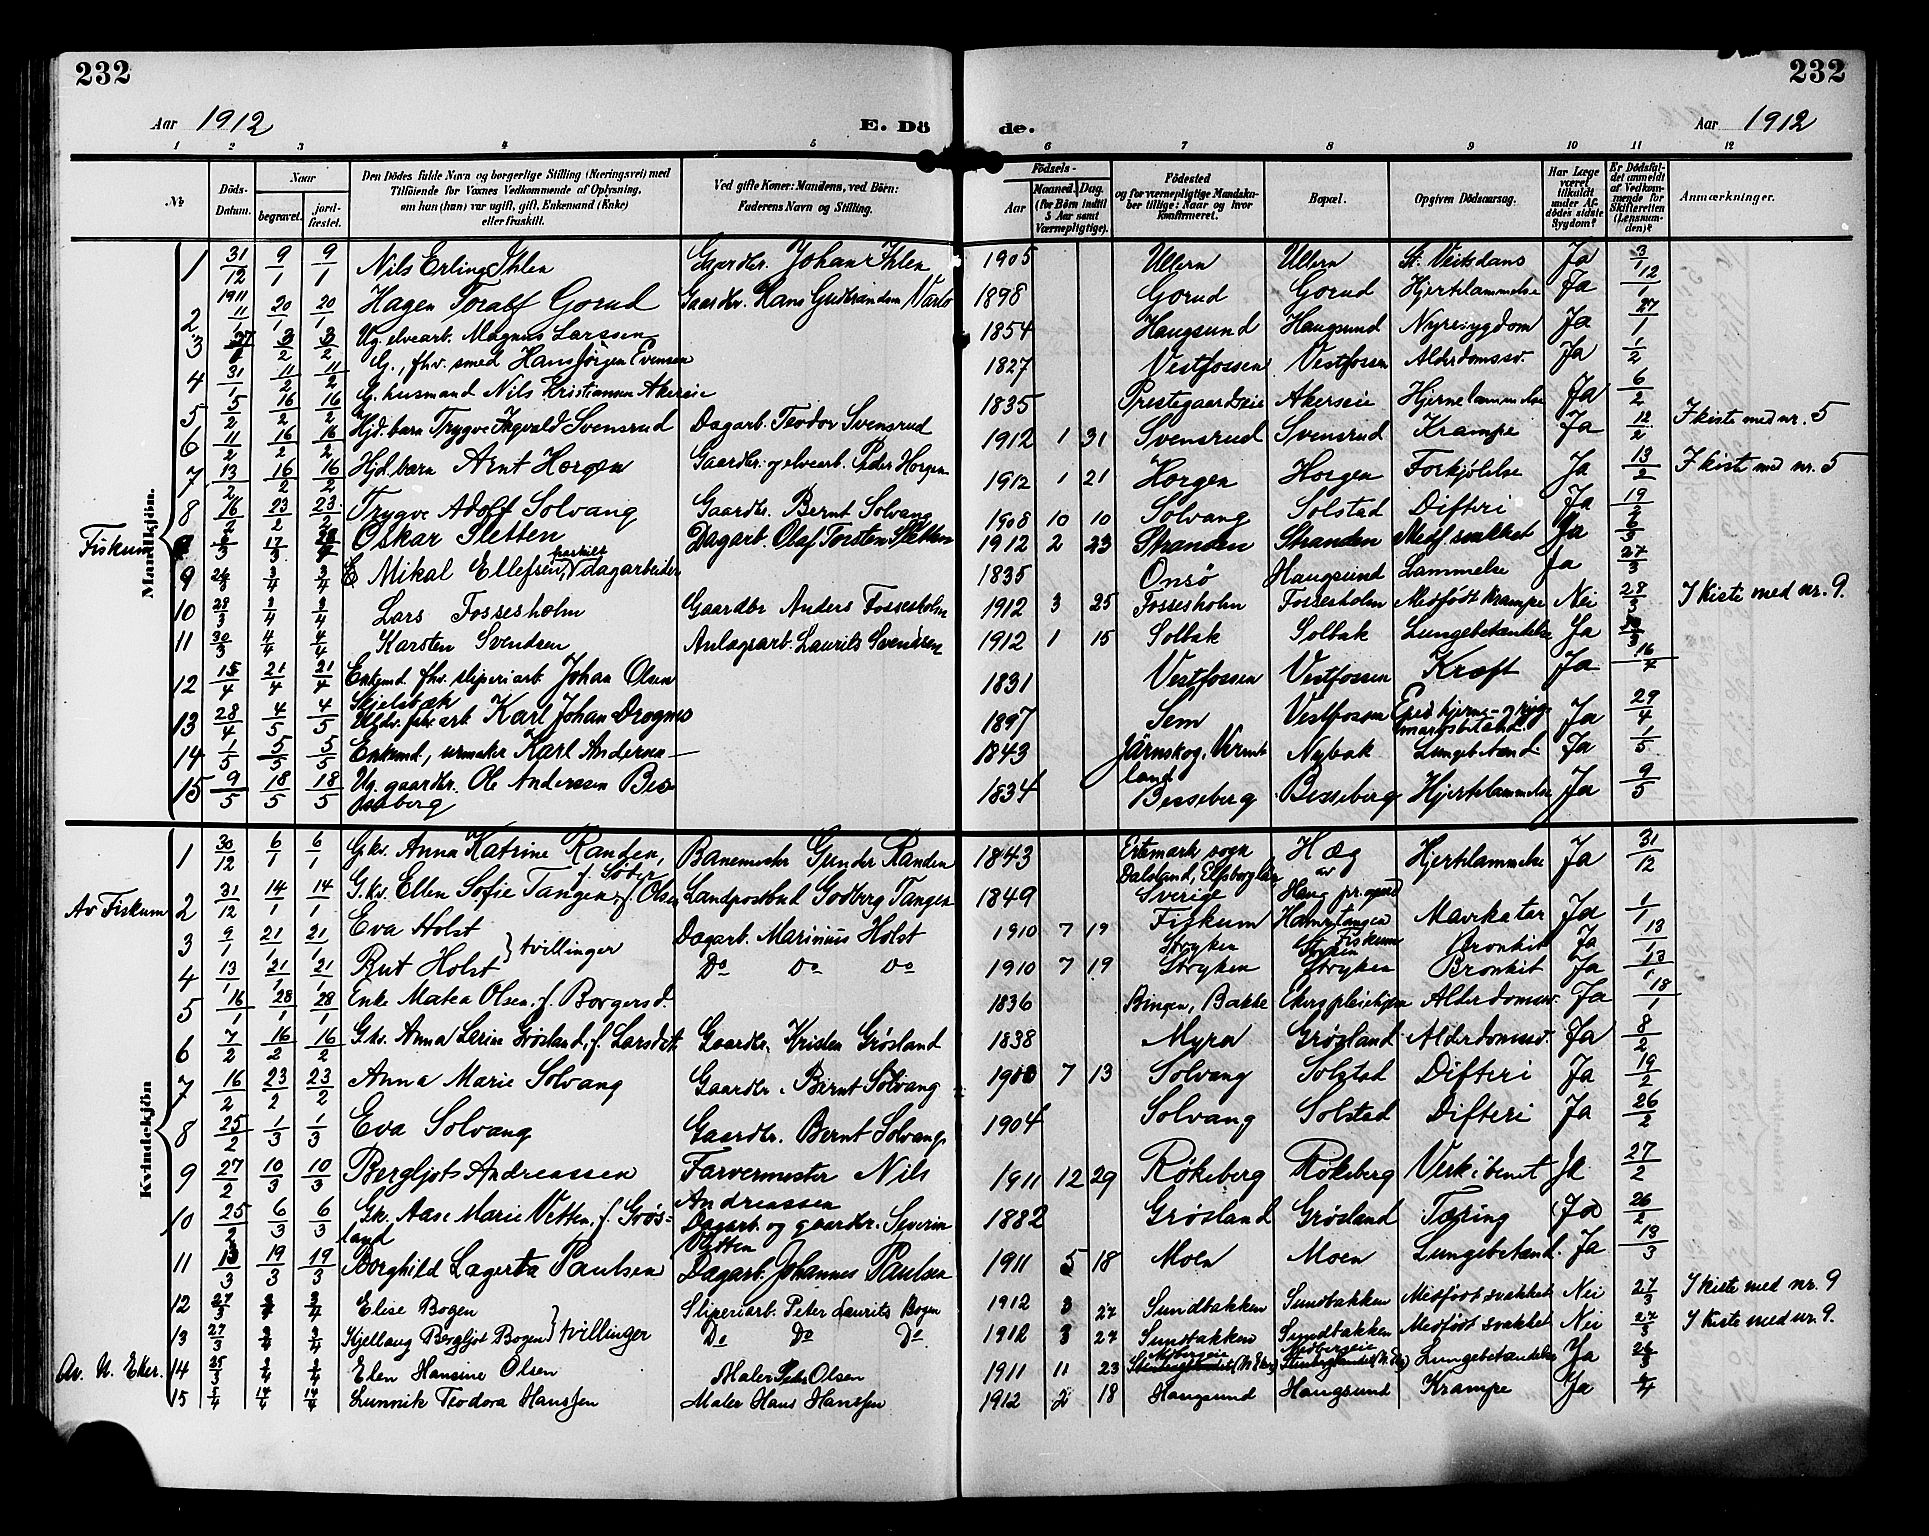 232
232
Aar 1912
E. Dö
de.
Aar 1912
1 2 3 4 5 6 7 8 9 10 11 12
No
Döds-Datum.
Naar
begravet.
jord-fæstet.
Den Dödes fulde Navn og borgerlige Stilling (Næringsvei) med
Tilföiende for Voxnes Vedkommende af Oplysning,
om hun (han) var ugift, gift, Enkemand (Enke)
eller fraskilt.
Ved gifte Koner: Mandens, ved Börn:
Faderens Navn og Stilling.
Födsels-
Aar
Maaned. Dag.
(for Börn indtil
5 Aar samt
Værnepligtige).
Födested
og for værnepligtige Mandska-
ber tillige: Naar og hvor
konfirmeret.
Bopæl.
Opgiven Dödsaarsag.
Har Læge
været
tilkaldt
under Af-
dödes sidste
Sygdom?
Er Dödsfal-
det anmeldt
af Vedkom-
mende for
Skifteretten
(Lensman-
den)?
Anmærkninger.
Fiskum
Mandkjön.
1 31/12 1911 9/1 9/1 Nils Erling Ihlen Gaardbr. Johan Ihlen 1905 Ullern Ullern St. Veitsdans Ja 3/1
2 11/1 20/1 20/1 Hagen Toralf Gorud Gaardbr. Hans Gudbrandsen Varlo 1898 Gorud Gorud Hjertelammelse Ja 12/1
3 27/1 3/2 3/2 Ug. elvearb. Magnus Larssen 1854 Haugsund Haugsund Nyresygdom Ja 27/1
4 31/1 11/2 11/2 G., fhv. smed Hans Jørgen Evensen 1827 Vestfossen Vestfossen Alderdomssv. Ja 1/2
5 5/2 16/2 16/2 G. husmand Nils Kristiansen Akerseie 1835 Prestegaardseie Akerseie Hjernelammelse Ja 6/2
6 11/2 16/2 16/2 Hjd. barn Trygve Ingvald Svensrud Dagarb. Teodor Svensrud 1912 1 31 Svensrud Svensrud Krampe Ja 12/2 I kiste med nr. 5
7 13/2 16/2 16/2 Hjd. barn Arnt Horgen Gaardbr. og elvearb. Peder Horgen 1912 1 21 Horgen Horgen Forkjølelse Ja 13/2 I kiste med nr. 5
8 16/2 23/2 23/2 Trygve Adolf Solvang Gaardbr. Bernt Solvang 1908 10 10 Solvang Solstad Difteri Ja 19/2
Oskar Sletten Dagarb. Olaf Torsten Sletten 1912 2 23 Stranden Stranden Medf. svakhet Ja 6/3
9 26/3 3/4 3/4 E Mikal Ellefsen, dagarbeider 1835 Onsø Haugsund Lammelse Ja 27/3
10 28/3 3/4 3/4 Lars Fossesholm Gaardbr Anders Fossesholm 1912 3 25 Fossesholm Fossesholm Medfødt krampe Nei 28/3 I kiste med nr. 9.
11 30/3 4/4 4/4 Karsten Svendsen Anlagsarb. Laurits Svendsen 1912 1 15 Solbak Solbak Lungebetændelse Ja
12 15/4 21/4 21/4 Enkemd fhv. sliperiarb Johan Olsen Skjelsbæk 1831 Vestfossen Vestfossen Kræft Ja 16/4
13 28/4 4/5 4/5 Karl Johan Drognes 1897 Sem Vestfossen Epid. hjerne- og ryg-
margsbetænd. Ja 29/4
14 1/5 5/5 5/5 Enkemd, urmaker Karl Andersen 1843 Järnskog, Verm-
land Nybak Lungebetænd. Ja 1/5
15 9/5 18/5 18/5 Ug. gaardbr. Ole Anderssen Bes-
seberg 1834 Besseberg Besseberg Hjertelammelse Ja 9/5
Kvindekjön
1 30/12 6/1 6/1 G.kv. Anna Katrine Randen, Banemester Gunder Randen 1843 Ertemark sogn
Dalsland, Elfsborg län
Sverige Hæg Hjertelammelse Ja 31/12
Av Fiskum 2 31/12 14/1 14/1 G. kv. Ellen Sofie Tangen, f. Olsen Landpostbud Godberg Tangen 1849 Fiskum Mavekatar Ja 1/1
3 9/1 21/1 21/1 Eva Holst } tvillinger Dagarb. Marinius Holst 1910 7 19 Stryken Stryken Bronkit Ja 13/1
4 13/1 21/1 21/1 Rut Holst Do Do Do 1910 7 19 Stryken Stryken Bronkit Ja 13/1
5 16/1 28/1 28/1 Enke Matea Olsen, f. Borgersd. 1836 Bingen, Bakke Ekers pleiehjem Alderdomssv. Ja 18/1
6 7/2 16/2 16/2 G.kv. Anna Serine Grøsland, f. Larsdt. Gaardbr. Kristen Grøsland 1838 Myra Grøsland Alderdomssv. Ja 8/2
7 16/2 23/2 23/2 Anna Marie Solvang Gaardbr. Bernt Solvang 7 13 Solvang Solstad Difteri Ja 19/2
8 25/2 1/3 1/3 Eva Solvang Gaardbr. Bernt Solvang 1904 Solvang Solstad Difteri Ja 26/2
9 27/2 10/3 10/3 Bergljot Andreassen Farvermester Nils
Andreassen 1911 12 29 Røkeberg Røkeberg Verk i benet Ja 27/2
10 25/2 6/3 6/3 Gk. Aase Marie Vetten, f. Grøs-
land Dagarb og gaardbr. Severin
Vetten 1882 Grøsland Grøsland Tæring Ja 26/2
11 13/3 19/3 19/3 Borghild Lagerta Paulsen Dagarb. Johannes Paulsen 1911 5 18 Moen Moen Lungebetænd. Ja 13/3
12 27/3 3/4 3/4 Elise Bogen } tvillinger Sliperiarb. Peter Laurits Bogen 1912 3 27 Sundbakken Sundbakken Medfødt svakhet Nei 27/3 I kiste med nr. 9
13 27/3 3/4 3/4 Kjellaug Bergljot Bogen Do Do Do 1912 3 27 Sundbakken Sundbakken Medfødt svakhet Nei 27/3 I kiste med nr. 9.
Av. N. Eker. 14 25/3 3/4 3/4 Elen Hansine Olsen Maler Olsen 1911 11 23 Lungebetændelse Ja 26/3
15 14/4 14/4 Lunnik Teodora Hanssen Maler Hans Hanssen 1912 2 18 Haugsund Haugsund Krampe Ja